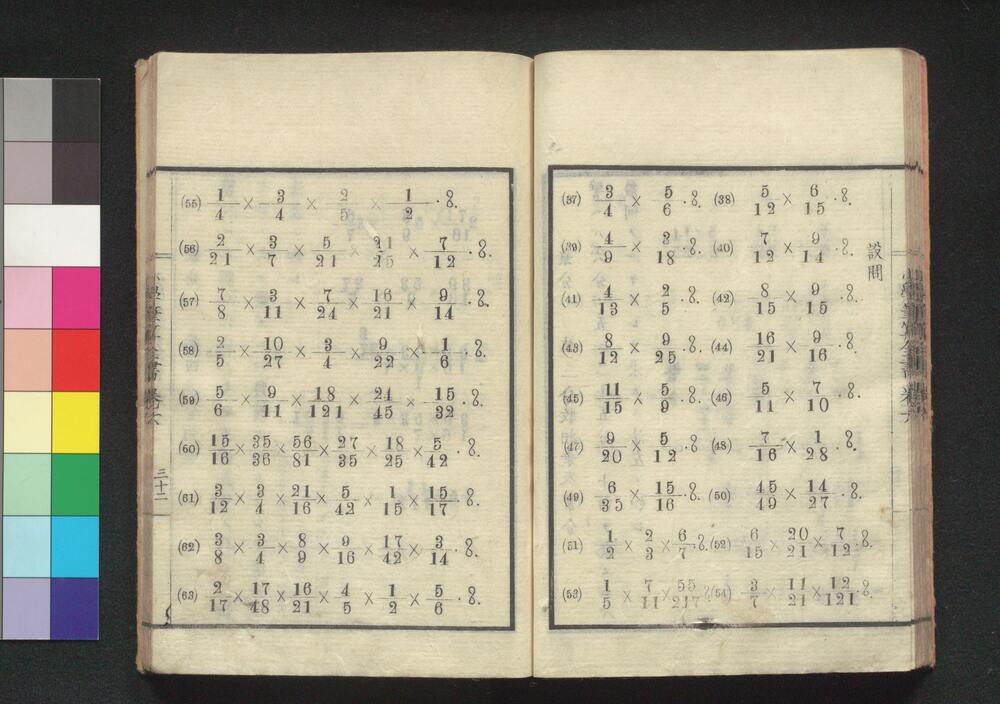 設問
(37) 3/4 × 5/6 .8. (38) 5/12 × 6/15 .8.
(39) 4/9 × 3/18 .8. (40) 7/12 × 9/14 .8.
(41) 4/13 × 2/5 .8. (42) 8/15 × 9/15 .8.
(43) 8/12 × 9/25 .8. (44) 16/21 × 9/16 .8.
(45) 11/15 × 5/9 .8. (46) 5/11 × 7/10 .8.
(47) 9/20 × 5/12 .8. (48) 7/16 × 1/28 .8.
(49) 6/35 × 15/16 .8. (50) 45/49 × 14/27 .8.
(51) 1/2 × 2/3 × 6/7 .8. (52) 6/15 × 20/21 × 7/12 .8.
(53) 1/5 × 7/11 × 55/217 .8. (54) 3/7 × 11/21 × 12/121 .8.
(55) 1/4 × 3/4 × 2/5 × 1/2 .8.
(56) 2/21 × 3/7 × 5/21 × 21/25 × 7/12 .8.
(57) 7/8 × 3/11 × 7/24 × 16/21 × 9/14 .8.
(58) 2/5 × 10/27 × 3/4 × 9/22 × 1/6 .8.
(59) 5/6 × 9/11 × 18/121 × 24/45 × 15/32 .8.
(60) 15/16 × 35/36 × 56/81 × 27/35 × 18/25 × 5/42 .8.
(61) 3/12 × 3/4 × 21/16 × 5/42 × 1/15 × 15/17 .8.
(62) 3/8 × 3/4 × 8/9 × 9/16 × 17/42 × 3/14 .8.
(63) 2/17 × 17/48 × 16/21 × 4/5 × 1/2 × 5/6 .8.
三十二